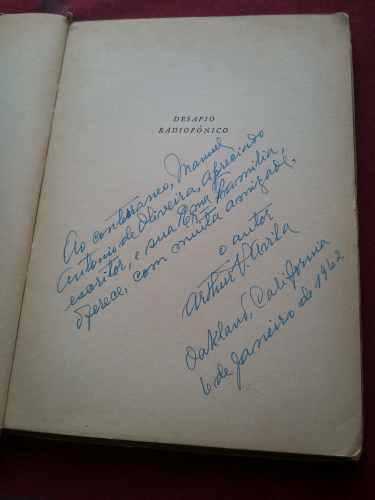 DESAFIO
RADIOFÓNICO
Ao conterraneo, Manuel
Antonio de Oliveira, apreciado
escritor, e sua Exma Familia,
oferece, com muita amizade,
o autor
Arthur V. Avila
Oakland, California
6 de Janeiro de 1962